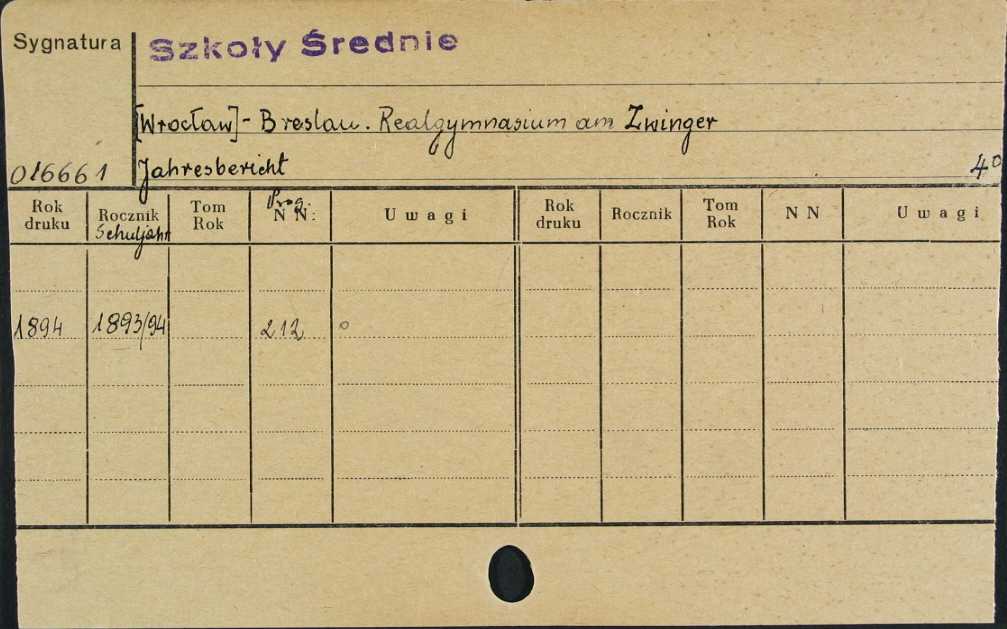 Sygnatura
Szkoły Średnie
[Wrocław] - Breslau. Realgymnasium am Zwinger
016661 Jahresbericht 4°
Rok druku Rocznik Schuljahr Tom Rok Prog. NN: Uwagi Rok druku Rocznik Tom Rok NN Uwagi
1894 1893/94 212 o